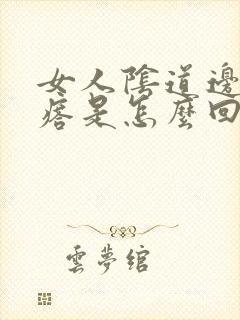 女人陰道邊
痞是怎麼回
雲夢綰